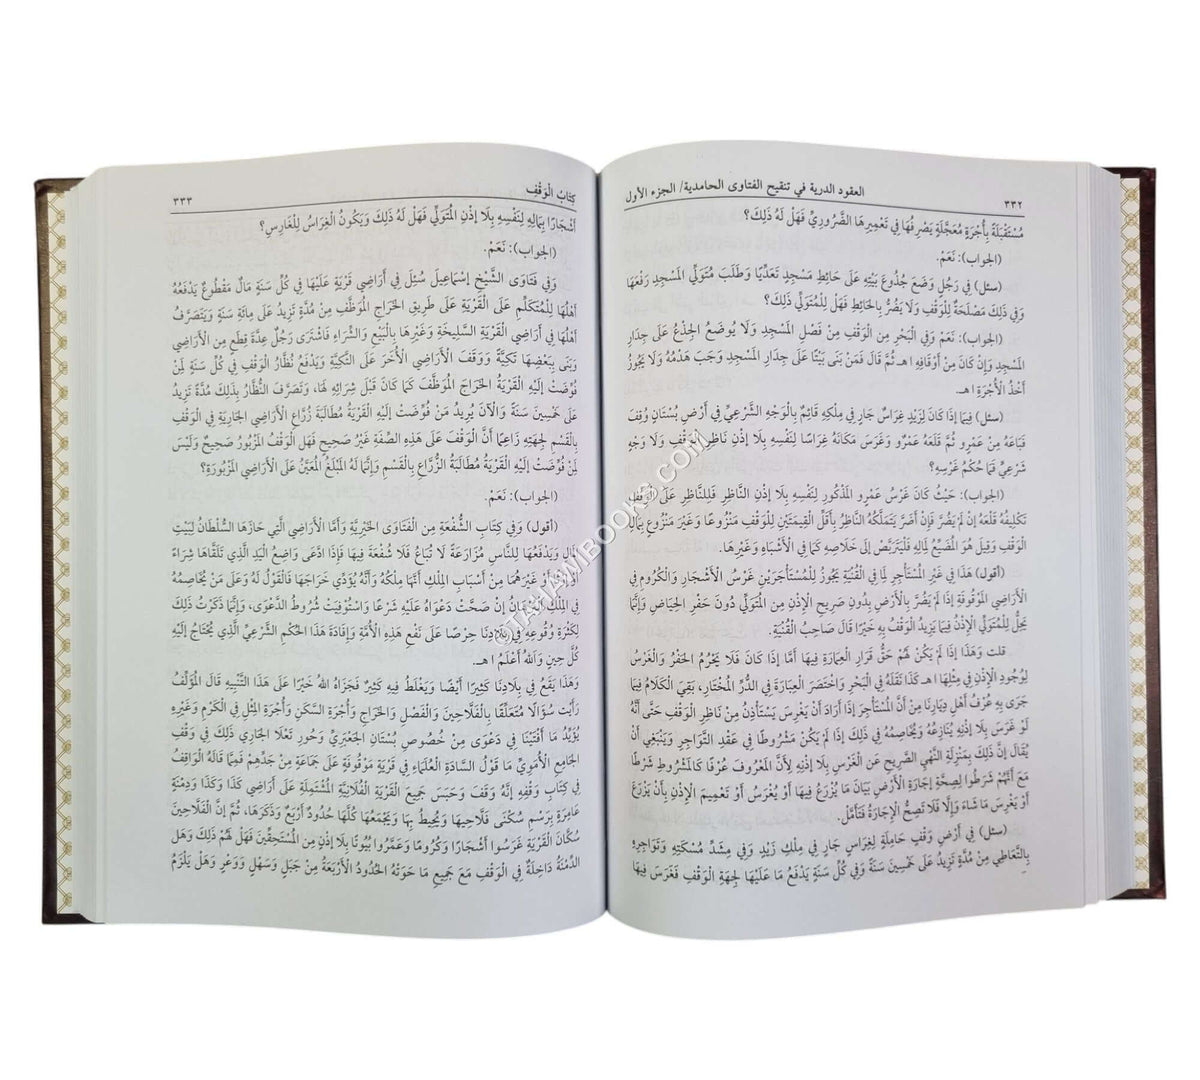 ٣٣٢
العقود الدرية في تنقيح الفتاوى الحامدية/ الجزء الأول
مُسْتَقْبَلَةً بِأُجْرَةٍ مُعَجَّلَةٍ يَصْرِفُهَا فِي تَعْمِيرِهَا الضَّرُورِيِّ فَهَلْ لَهُ ذَلِكَ؟
(الجواب): نَعَمْ.
(سئل) فِي رَجُلٍ وَضَعَ جُذُوعَ بَيْتِهِ عَلَى حَائِطِ مَسْجِدٍ تَعَدِّيًا وَطَلَبَ مُتَوَلِّي المَسْجِدِ رَفْعَهَا
وَفِي ذَلِكَ مَصْلَحَةٌ لِلْوَقْفِ وَلَا يَضُرُّ بِالحَائِطِ فَهَلْ لِلْمُتَوَلِّي ذَلِكَ؟
(الجواب): نَعَمْ وَفِي البَحْرِ مِن الوَقْفِ مِن فَصْلِ المَسْجِدِ وَلَا يُوضَعُ الجِذْعُ عَلَى جِدَارِ
المَسْجِدِ وَإِن كَانَ مِنْ أَوْقَافِهِ ا هـ ثُمَّ قَالَ فَمَنْ بَنَى بَيْتًا عَلَى جِدَارِ المَسْجِدِ وَجَبَ هَدْمُهُ وَلَا يَجُوزُ
أَخْذُ الأُجْرَةِ ا هـ.
(سئل) فِيمَا إِذَا كَانَ لِزَيْدٍ غِرَاسٌ جَارٍ فِي مِلْكِهِ قَائِمٌ بِالْوَجْهِ الشَّرْعِيِّ فِي أَرْضِ بُسْتَانِ وَقْفٍ
فَبَاعَهُ مِنْ عَمْرٍو ثُمَّ قَلَعَهُ عَمْرٌو وَغَرَسَ مَكَانَهُ غِرَاسًا لِنَفْسِهِ بِلَا إِذْنِ نَاظِرِ الوَقْفِ وَلَا وَجْهٍ
شَرْعِيٍّ فَمَا حُكْمُ غَرْسِهِ؟
(الجواب): حَيْثُ كَانَ غَرْسُ عَمْرٍو المَذْكُورِ لِنَفْسِهِ بِلَا إِذْنِ النَّاظِرِ فَلِلنَّاظِرِ عَلَى الوَقْفِ
تَكْلِيفُهُ قَلْعَهُ إِنْ لَمْ يَضُرَّ فَإِنْ أَضَرَّ يَتَمَلَّكُهُ النَّاظِرُ بِأَقَلِّ القِيمَتَيْنِ لِلْوَقْفِ مَنْزُوعًا وَغَيْرَ مَنْزُوعٍ بِمَالِ
الوَقْفِ وَقِيلَ هُوَ المُضَيِّعُ لِمَالِهِ فَلْيَتَرَبَّصْ إِلَى خَلَاصِهِ كَمَا فِي الأَشْبَاهِ وَغَيْرِهَا.
(أقول) هَذَا فِي غَيْرِ المُسْتَأْجِرِ لِمَا فِي القُنْيَةِ يَجُوزُ لِلْمُسْتَأْجِرِينَ غَرْسُ الأَشْجَارِ وَالكُرُومِ فِي
الأَرَاضِي المَوْقُوفَةِ إِذَا لَمْ يَضُرَّ بِالأَرْضِ بِدُونِ صَرِيحِ الإِذْنِ مِن المُتَوَلِّي دُونَ حَفْرِ الحِيَاضِ وَإِنَّمَا
يَحِلُّ لِلْمُتَوَلِّي الإِذْنُ فِيمَا يَزِيدُ الوَقْفُ بِهِ خَيْرًا قَالَ صَاحِبُ القُنْيَةِ.
قلت وَهَذَا إِذَا لَمْ يَكُنْ لَهُمْ حَقُّ قَرَارِ العِمَارَةِ فِيهَا أَمَّا إِذَا كَانَ فَلَا يَحْرُمُ الحَفْرُ وَالغَرْسُ
لِوُجُودِ الإِذْنِ فِي مِثْلِهَا ا هـ كَذَا نَقَلَهُ فِي البَحْرِ وَاخْتَصَرَ العِبَارَةَ فِي الدُّرِّ المُخْتَارِ، بَقِيَ الكَلَامُ فِيمَا
جَرَى بِهِ عُرْفُ أَهْلِ دِيَارِنَا مِنْ أَنَّ المُسْتَأْجِرَ إِذَا أَرَادَ أَنْ يَغْرِسَ يَسْتَأْذِنُ مِنْ نَاظِرِ الوَقْفِ حَتَّى أَنَّهُ
لَوْ غَرَسَ بِلَا إِذْنِهِ يُنَازِعُهُ وَيُخَاصِمُهُ فِي ذَلِكَ إِذَا لَمْ يَكُنْ مَشْرُوطًا فِي عَقْدِ التَّوَاجُرِ وَيَنْبَغِي أَنْ
يُقَالَ إِنَّ ذَلِكَ بِمَنْزِلَةِ النَّهْيِ الصَّرِيحِ عَن الغَرْسِ بِلَا إِذْنِهِ لِأَنَّ المَعْرُوفَ عُرْفًا كَالمَشْرُوطِ شَرْطًا
مَعَ أَنَّهُمْ شَرَطُوا لِصِحَّةِ إِجَارَةِ الأَرْضِ بَيَانَ مَا يُزْرَعُ فِيهَا أَوْ يُغْرَسُ أَوْ تَعْمِيمَ الإِذْنِ بِأَنْ يَزْرَعَ
أَوْ يَغْرِسَ مَا شَاءَ وَإِلَّا فَلَا تَصِحُّ الإِجَارَةُ فَتَأَمَّلْ.
(سئل) فِي أَرْضِ وَقْفٍ حَامِلَةٍ لِغِرَاسٍ جَارٍ فِي مِلْكِ زَيْدٍ وَفِي مِشَدِّ مُسْكَتِهِ وَتَوَاجُرِهِ
بِالتَّعَاطِي مِنْ مُدَّةٍ تَزِيدُ عَلَى خَمْسِينَ سَنَةً وَفِي كُلِّ سَنَةٍ يَدْفَعُ مَا عَلَيْهَا لِجِهَةِ الوَقْفِ فَغَرَسَ فِيهَا
كِتَابُ الْوَقْفِ
٣٣٣
أَشْجَارًا بِمَالِهِ لِنَفْسِهِ بِلَا إِذْنِ المُتَوَلِّي فَهَلْ لَهُ ذَلِكَ وَيَكُونُ الْغِرَاسُ لِلْغَارِسِ؟
(الجواب): نَعَمْ.
وَفِي فَتَاوَى الشَّيْخِ إِسْمَاعِيلَ سُئِلَ فِي أَرَاضِي قَرْيَةٍ عَلَيْهَا فِي كُلِّ سَنَةٍ مَالٌ مَقْطُوعٌ يَدْفَعُهُ
أَهْلُهَا لِلْمُتَكَلِّمِ عَلَى الْقَرْيَةِ عَلَى طَرِيقِ الْخَرَاجِ المُوَظَّفِ مِنْ مُدَّةٍ تَزِيدُ عَلَى مِائَةِ سَنَةٍ وَيَتَصَرَّفُ
أَهْلُهَا فِي أَرَاضِي الْقَرْيَةِ السَّلِيخَةِ وَغَيْرِهَا بِالْبَيْعِ وَالشِّرَاءِ فَاشْتَرَى رَجُلٌ عِدَّةَ قِطَعٍ مِن الْأَرَاضِي
وَبَنَى بِبَعْضِهَا تَكِيَّةً وَوَقَفَ الْأَرَاضِي الْأُخَرَ عَلَى التَّكِيَّةِ وَيَدْفَعُ نُظَّارُ الْوَقْفِ فِي كُلِّ سَنَةٍ لِمَنْ
فُوِّضَتْ إِلَيْهِ الْقَرْيَةُ الْخَرَاجَ المُوَظَّفَ كَمَا كَانَ قَبْلَ شِرَائِهِ لَهَا، وَتَصَرَّفَ النُّظَّارُ بِذَلِكَ مُدَّةً تَزِيدُ
عَلَى خَمْسِينَ سَنَةً وَالْآنَ يُرِيدُ مَنْ فُوِّضَتْ إِلَيْهِ الْقَرْيَةُ مُطَالَبَةَ زُرَّاعِ الْأَرَاضِي الْجَارِيَةِ فِي الْوَقْفِ
بِالْقَسْمِ لِجِهَتِهِ زَاعِمًا أَنَّ الْوَقْفَ عَلَى هَذِهِ الصِّفَةِ غَيْرُ صَحِيحٍ فَهَلِ الْوَقْفُ المَزْبُورُ صَحِيحٌ وَلَيْسَ
لِمَنْ فُوِّضَتْ إِلَيْهِ الْقَرْيَةُ مُطَالَبَةُ الزُّرَّاعِ بِالْقَسْمِ وَإِنَّمَا لَهُ المَبْلَغُ المُعَيَّنُ عَلَى الْأَرَاضِي المَزْبُورَةِ؟
(الجواب): نَعَمْ.
(أقول) وَفِي كِتَابِ الشُّفْعَةِ مِن الْفَتَاوَى الْخَيْرِيَّةِ وَأَمَّا الْأَرَاضِي الَّتِي حَازَهَا السُّلْطَانُ لِبَيْتِ
المَالِ وَيَدْفَعُهَا لِلنَّاسِ مُزَارَعَةً لَا تُبَاعُ فَلَا شُفْعَةَ فِيهَا فَإِذَا ادَّعَى وَاضِعُ الْيَدِ الَّذِي تَلَقَّاهَا شِرَاءً
أَوْ إِرْثًا أَوْ غَيْرَهُمَا مِنْ أَسْبَابِ الْمِلْكِ أَنَّهَا مِلْكُهُ وَأَنَّهُ يُؤَدِّي خَرَاجَهَا فَالْقَوْلُ لَهُ وَعَلَى مَنْ يُخَاصِمُهُ
فِي الْمِلْكِ الْبُرْهَانُ إِنْ صَحَّتْ دَعْوَاهُ عَلَيْهِ شَرْعًا وَاسْتُوفِيَتْ شُرُوطُ الدَّعْوَى، وَإِنَّمَا ذَكَرْتُ ذَلِكَ
لِكَثْرَةِ وُقُوعِهِ فِي بِلَادِنَا حِرْصًا عَلَى نَفْعِ هَذِهِ الْأُمَّةِ وَإِفَادَةِ هَذَا الْحُكْمِ الشَّرْعِيِّ الَّذِي يُحْتَاجُ إِلَيْهِ
كُلَّ حِينٍ وَاللهُ أَعْلَمُ ا هـ.
وَهَذَا يَقَعُ فِي بِلَادِنَا كَثِيرًا أَيْضًا وَيَغْلَطُ فِيهِ كَثِيرٌ فَجَزَاهُ اللهُ خَيْرًا عَلَى هَذَا التَّنْبِيهِ قَالَ المُؤَلِّفُ
رَأَيْت سُؤَالًا مُتَعَلِّقًا بِالْفَلَّاحِينَ وَالْفَصْلِ وَالْخَرَاجِ وَأُجْرَةِ السَّكَنِ وَأُجْرَةِ الْمِثْلِ فِي الْكَرْمِ وَغَيْرِهِ
يُؤَيِّدُ مَا أَفْتَيْنَا فِي دَعْوَى مِنْ خُصُوصِ بُسْتَانِ الْجَعْبَرِيِّ وَحُورِ تَعْلَا الْجَارِي ذَلِكَ فِي وَقْفِ
الْجَامِعِ الْأُمَوِيِّ مَا قَوْلُ السَّادَةِ الْعُلَمَاءِ فِي قَرْيَةٍ مَوْقُوفَةٍ عَلَى جَمَاعَةٍ مِنْ جَدِّهِمْ فَمِمَّا قَالَهُ الْوَاقِفُ
فِي كِتَابِ وَقْفِهِ إِنَّهُ وَقَفَ وَحَبَسَ جَمِيعَ الْقَرْيَةِ الْفُلَانِيَّةِ المُشْتَمِلَةِ عَلَى أَرَاضِي كَذَا وَكَذَا وَدِمْنَةٍ
عَامِرَةٍ بِرَسْمِ سُكْنَى فَلَّاحِيهَا وَيُحِيطُ بِهَا وَيَجْمَعُهَا كُلَّهَا حُدُودٌ أَرْبَعٌ وَذَكَرَهَا، ثُمَّ إِنَّ الْفَلَّاحِينَ
سُكَّانَ الْقَرْيَةِ غَرَسُوا أَشْجَارًا وَكُرُومًا وَعَمَّرُوا بُيُوتًا بِلَا إِذْنٍ مِن المُسْتَحِقِّينَ فَهَلْ لَهُمْ ذَلِكَ وَهَل
الدِّمْنَةُ دَاخِلَةٌ فِي الْوَقْفِ مَعَ جَمِيعِ مَا حَوَتْهُ الْحُدُودُ الْأَرْبَعَةُ مِنْ جَبَلٍ وَسَهْلٍ وَوَعْرٍ وَهَلْ يَلْزَمُ